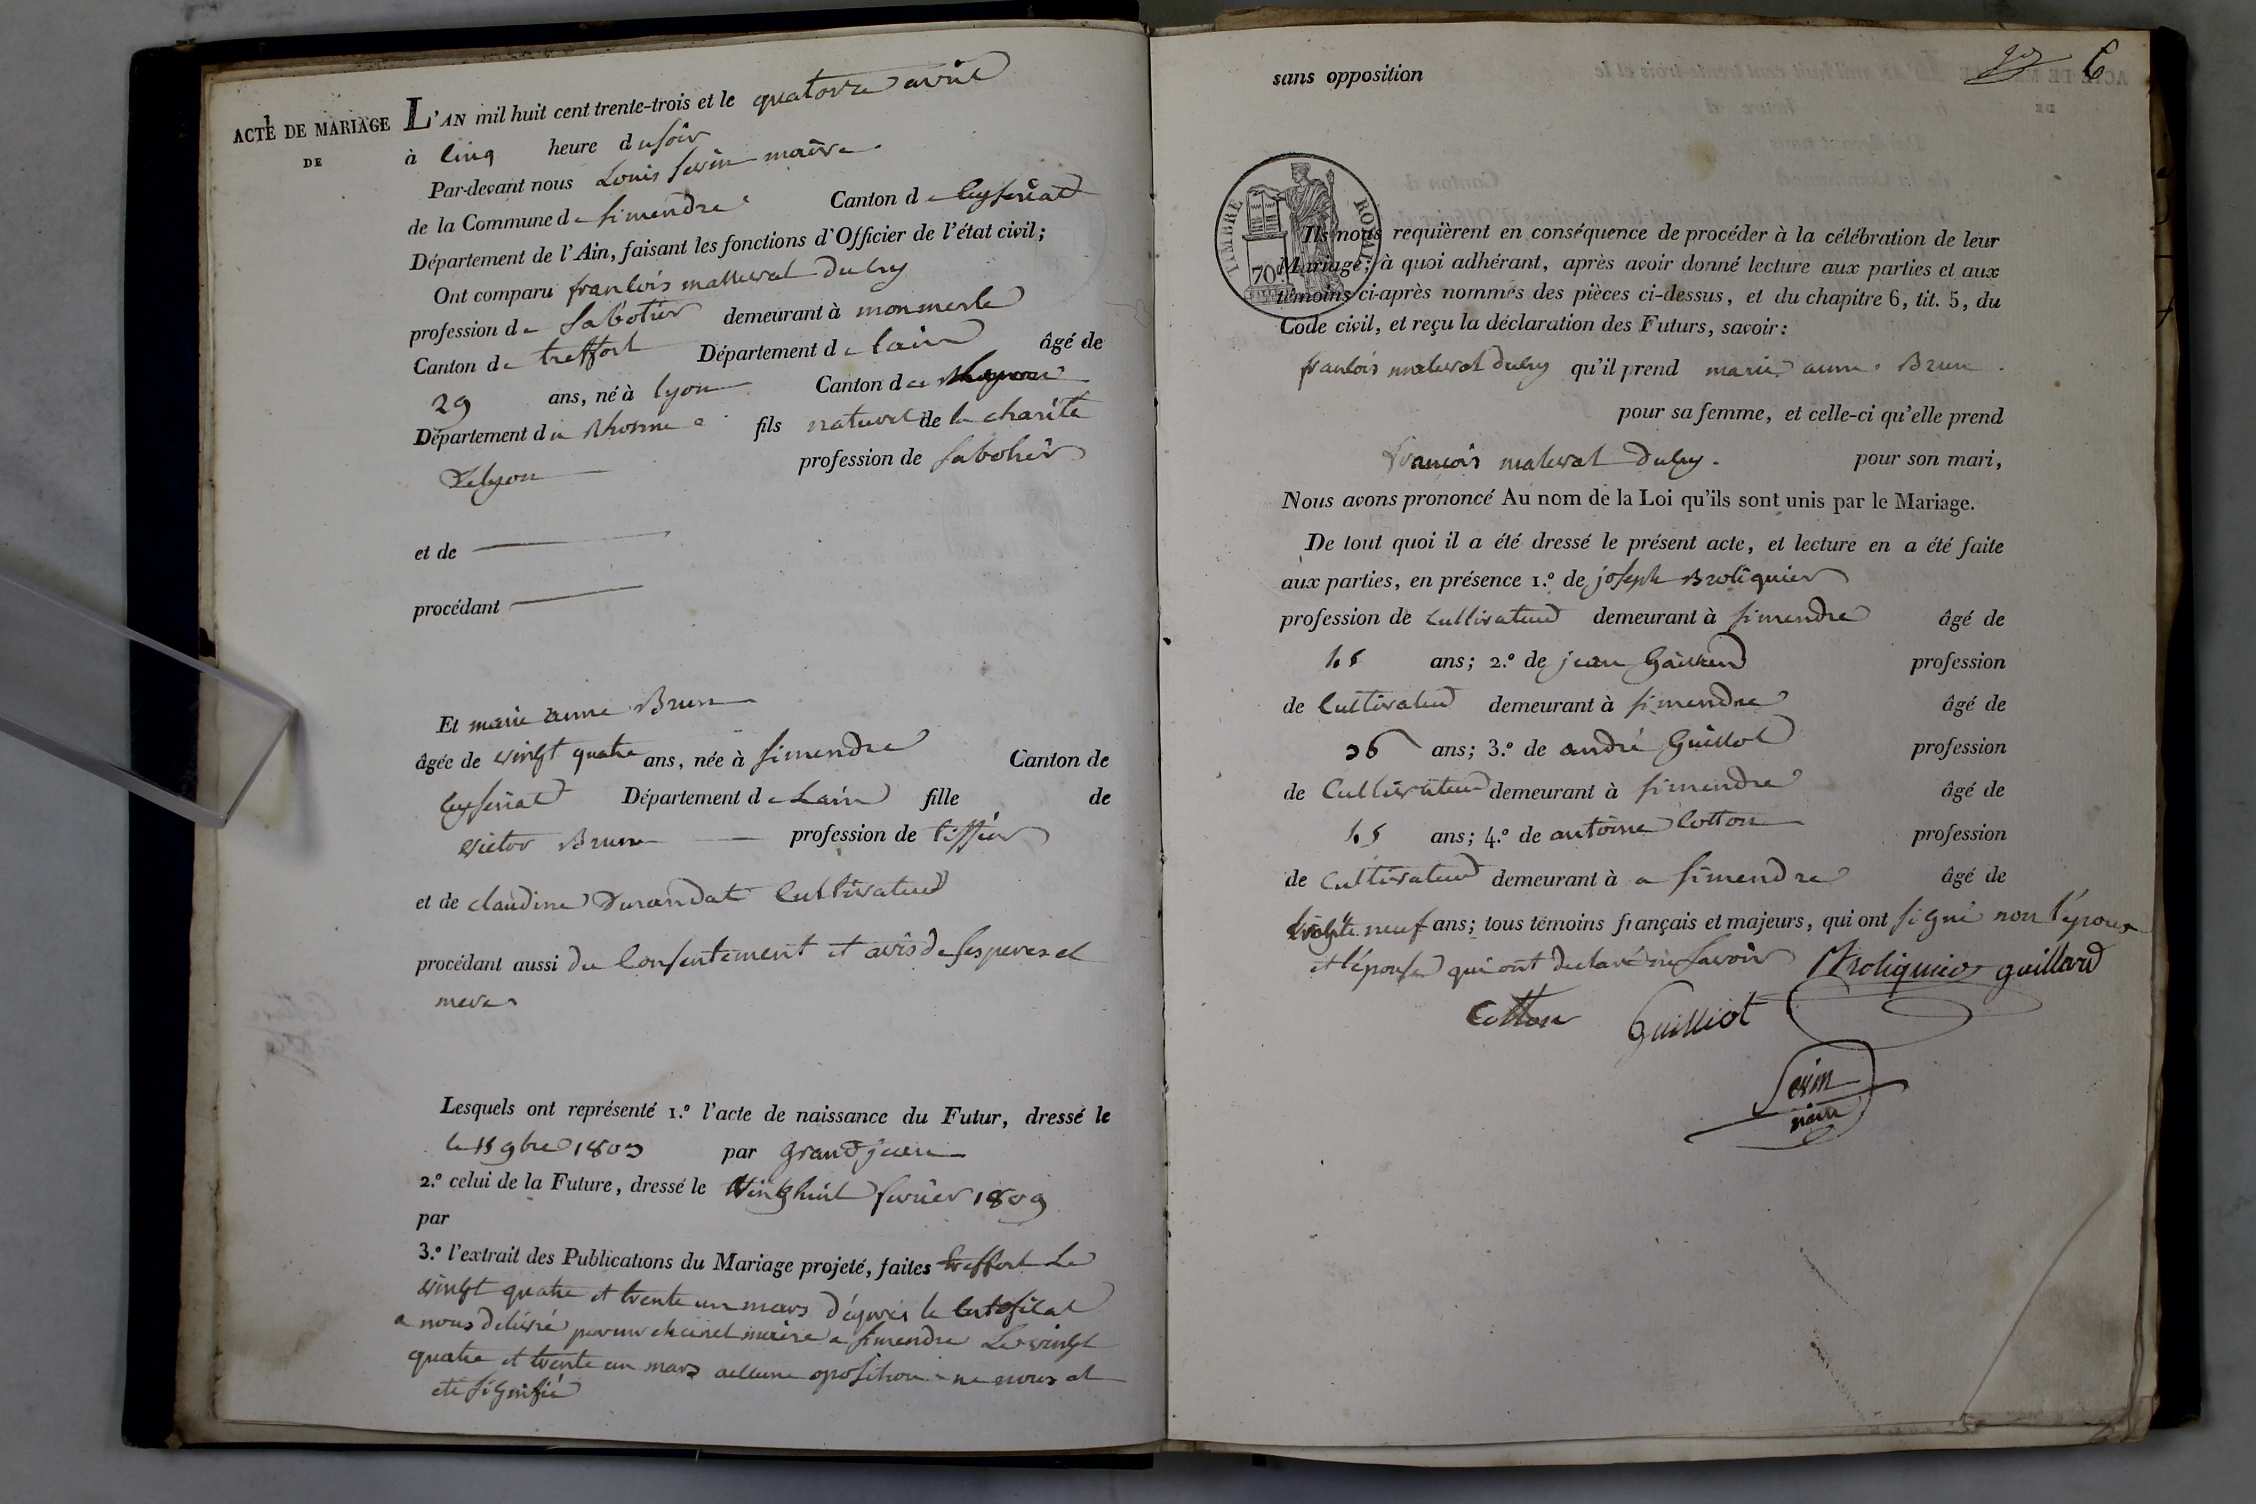 ACTE DE MARIAGE
DE
L'AN mil huit cent trente-trois et le quatorze avril
à Cinq heure du soir
Par-devant nous Louis Serin maire
de la Commune de Simendre Canton de Ceyseriat
Département de l'Ain, faisant les fonctions d'Officier de l'état civil;
Ont comparu francois malleval dulry
profession de Sabotier demeurant à monmerle
Canton de treffort Département de lain âgé de
29 ans, né à lyon Canton de
Département du Rhonne fils naturel de la charite
de lyon profession de Sabotier
et de
procédant
Et marie anne Brun
âgée de vingt quatre ans, née à Simendre Canton de
Ceyseriat Département de Lain fille de
victor Brun profession de tissier
et de claudine Durandat Cultivateur
procédant aussi du Consentement et avis de ses peres et
mere
Lesquels ont représenté 1.º l'acte de naissance du Futur, dressé le
le 15 9bre 1803 par Grandjean
2.º celui de la Future, dressé le vingt huit fevrier 1809
par
3.º l'extrait des Publications du Mariage projeté, faites treffort Le
vingt quatre et trente un mars d'épres le
a nous delivré par maire a Simendre Le vingt
quatre et trente un mars aucune oposition ne nous et
ete signifié
6
sans opposition
TIMBRE ROYAL
70
Ils nous requièrent en conséquence de procéder à la célébration de leur
Mariage; à quoi adhérant, après avoir donné lecture aux parties et aux
témoins ci-après nommés des pièces ci-dessus, et du chapitre 6, tit. 5, du
Code civil, et reçu la déclaration des Futurs, savoir:
francois maleval dulry qu'il prend marie anne Brun
pour sa femme, et celle-ci qu'elle prend
francois maleval dulry pour son mari,
Nous avons prononcé Au nom de la Loi qu'ils sont unis par le Mariage.
De tout quoi il a été dressé le présent acte, et lecture en a été faite
aux parties, en présence 1.º de joseph Broliquier
profession de Cultivateur demeurant à Simendre âgé de
45 ans; 2.º de jean Gaillard profession
de Cultivateur demeurant à Simendre âgé de
36 ans; 3.º de andré Guillot profession
de Cultivateur demeurant à Simendre âgé de
45 ans; 4.º de antoine Cotton profession
de Cultivateur demeurant à a Simendre âgé de
neuf ans; tous témoins français et majeurs, qui ont signé non l'époux
et l'épouse qui ont declaré ne Savoir Broliquier guillard
Cotton Guilliot
Serin
maire